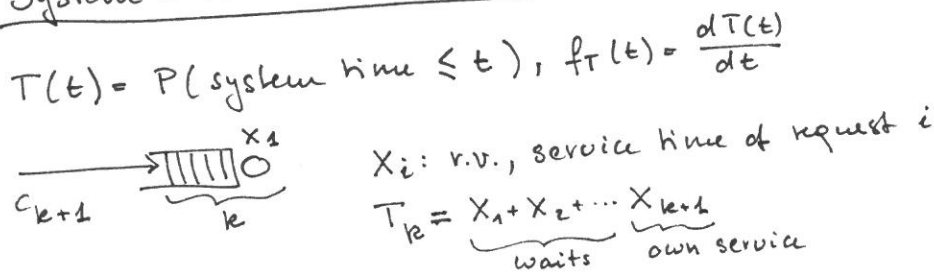 System
T(t) = P(system time ≤ t), f_T(t) = dT(t)/dt
X1
C_{k+1}
k
X_i: r.v., service time of request i
T_k = X_1 + X_2 + ... X_{k+1}
waits own service